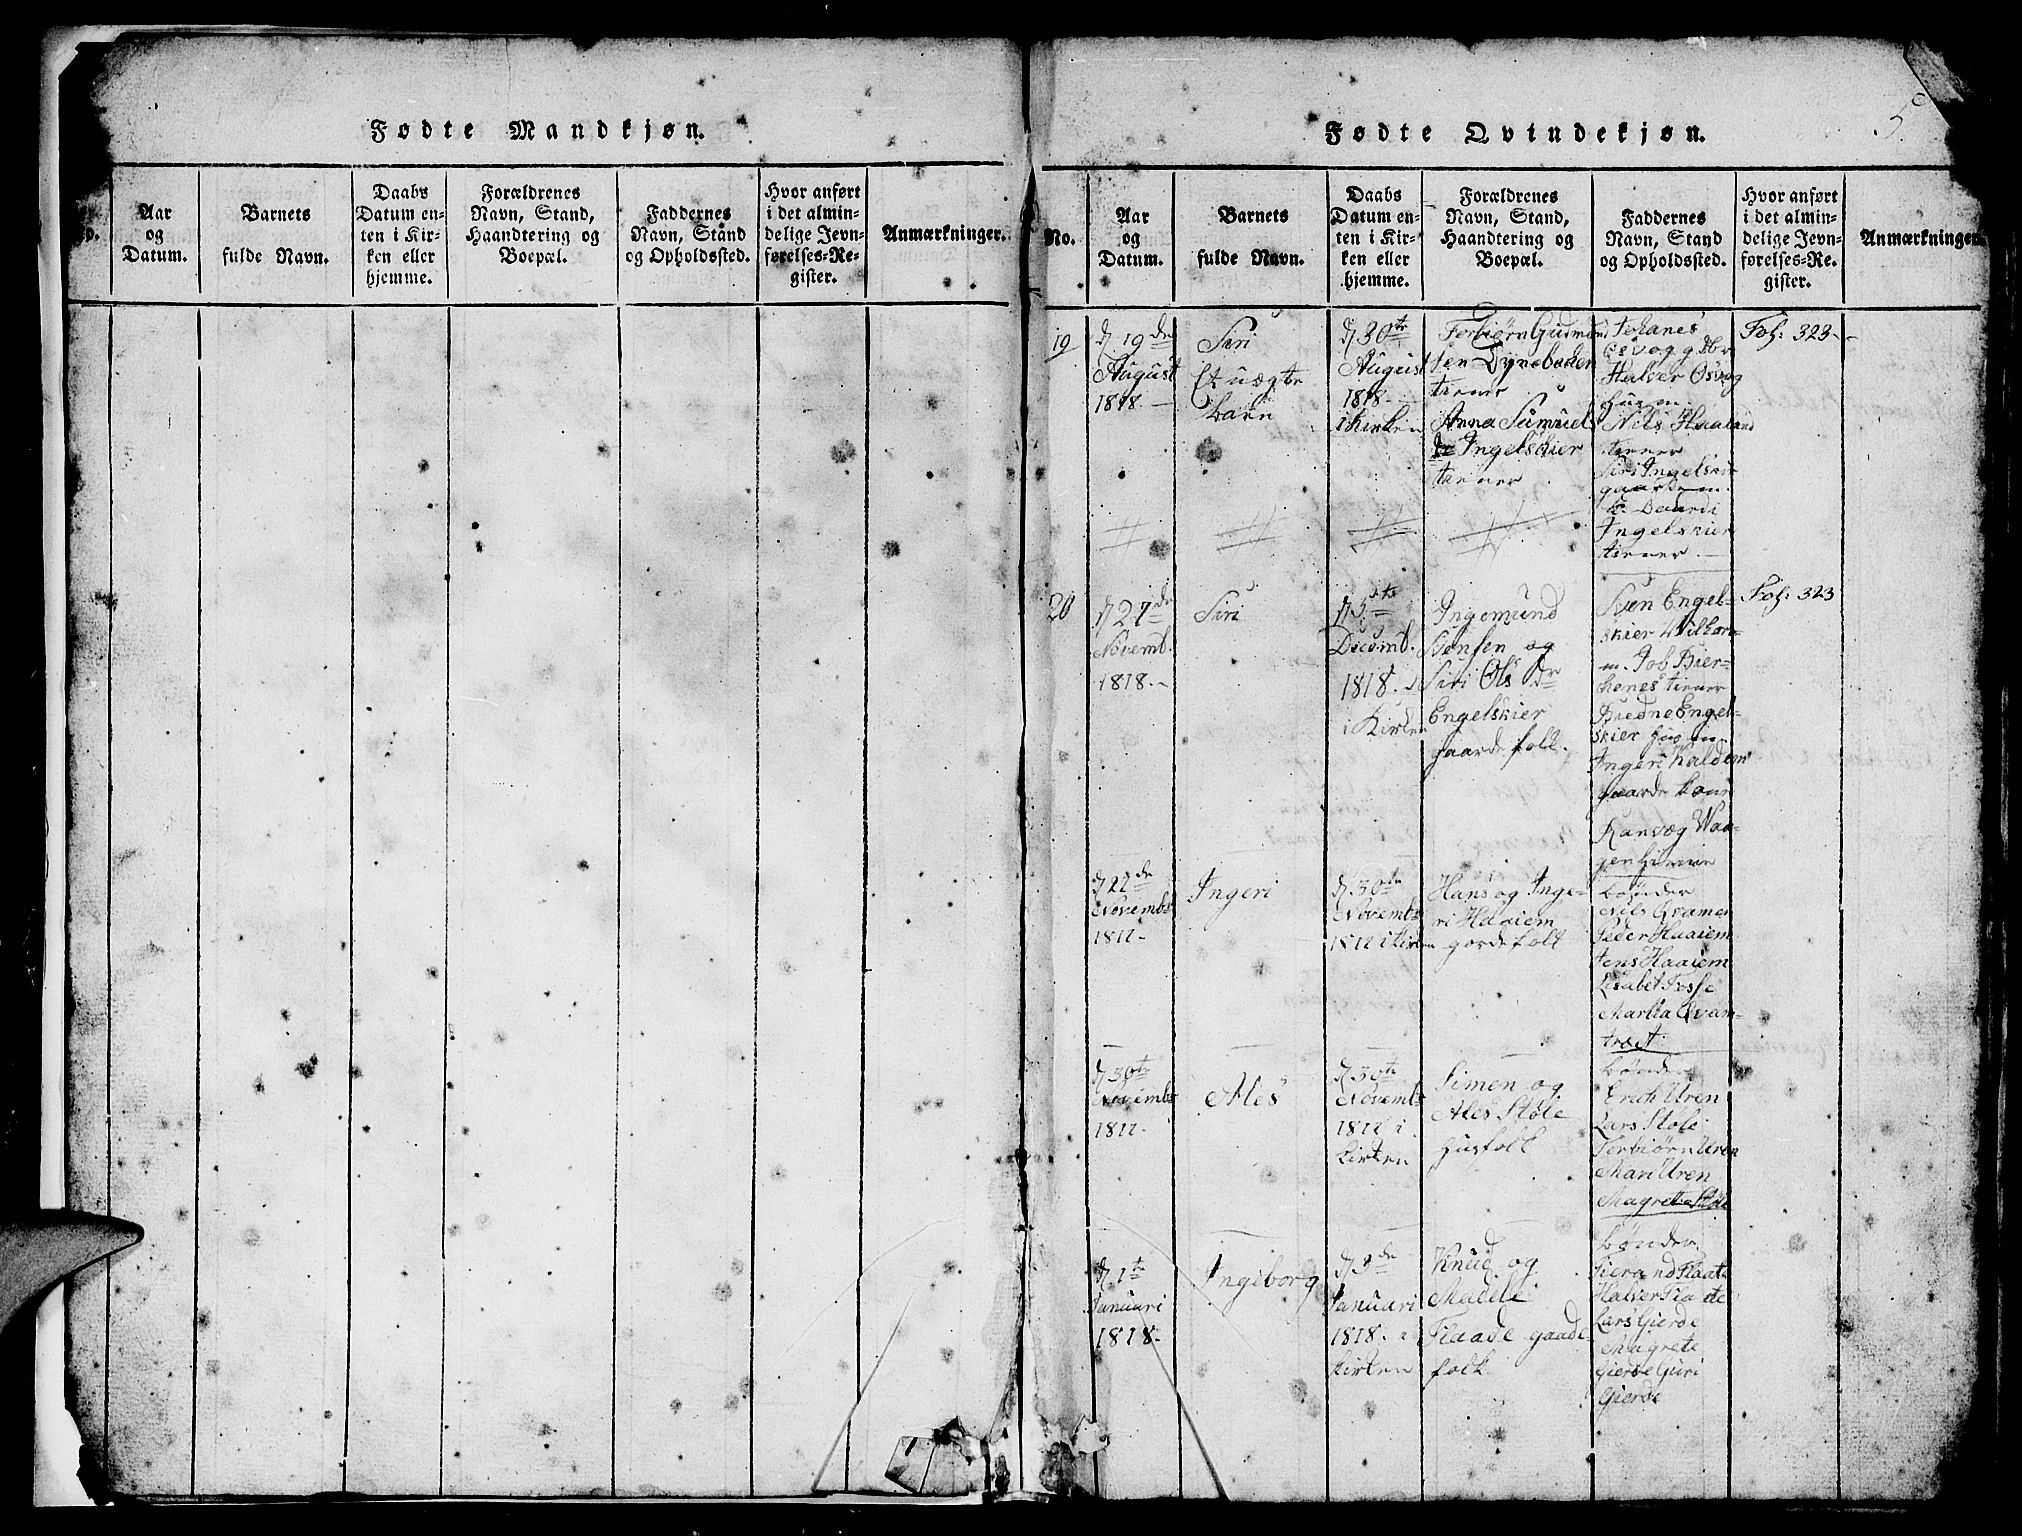 Fødte Mandkjøn.
Aar
og
Datum.
Barnets
fulde Navn.
Daabs
Datum en-
ten i Kir-
ken eller
hjemme.
Forældrenes
Navn, Stand,
Haandtering og
Boepæl.
Faddernes
Navn, Stand
og Opholdssted.
Hvor anført
i det almin-
delige Jevn-
førelses-Re-
gister.
Anmærkninger.
5
Fødte Qvindekjøn.
No.
Aar
og
Datum.
Barnets
fulde Navn.
Daabs
Datum en-
ten i Kir-
ken eller
hjemme.
Forældrenes
Navn, Stand,
Haandtering og
Boepæl.
Faddernes
Navn, Stand
og Opholdssted.
Hvor anført
i det almin-
delige Jevn-
førelses-Re-
gister.
Anmærkninger.
19
d 19de
August
1818.
Siri
Et uægte
barn
d 30te
August
1818.
i kirken
Torbiørn Gudmund
sen Dynebaden
tiener
Anna Samuels
dr Ingelskier
tiener
Johanes
Osvog gdbr
Halver Osvog
husm.
Nils Haaland
tiener
Siri Ingelskir
gaardem.
Ingelskier
tiener
Fol: 323
20
d 27de
Novemb.
1818.
Siri
d 5te
Decemb.
1818.
i Kirken
Ingemund
Hansen og
Siri Ols dr
Engelskier
gaarde folk.
Sven Engel-
skier
m. Job Bier-
kenes tiener
Bredne Engel-
skier husm
Ingeri Kaldem
gaarde kone
Ranvæg Waa-
gen
Fol: 323
d 22de
Novemb
1817.
Ingeri
d 30te
Novemb
1817 i kirken
Hans og Inge-
ri Haaiem
gorde folk
bønder
Nils Qvamen
Peder Haaiem
Jens Haaiem
Lisabet Fosse
Martha Qvam-
træet
d 30te
Novemb
1817.
Ales
d 30te
Novemb
1817 i
kirken
Simen og
Ales Støle
husfolk
bønder
Erich Uren
Lars Støle
Torbiørn Uren
Mari Uren
Magrete Støle
d 1te
Januari
1818.
Ingeborg
d 3de
Januari
1818. i
kirken
Knud og
Madeli
Flaade gaade
folk
bønder
Sierand Flaate
Halver Flaate
Lars Gierde
Magrete
Gierde Guri
Gierde